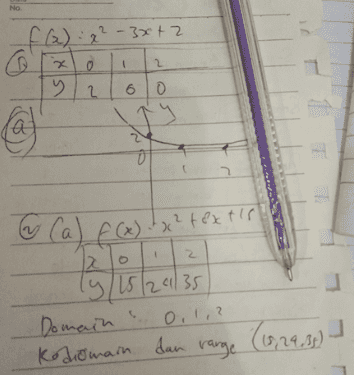 No.
f(x) : x² - 3x + 2
① x 0 1 2
y 2 0 0
ⓐ
y
2
0
1 2
② (a) f(x) = x² + 8x + 15
x 0 1 2
y 15 24 35
Domain : 0, 1, 2
Kodomain dan range (15, 24, 35)